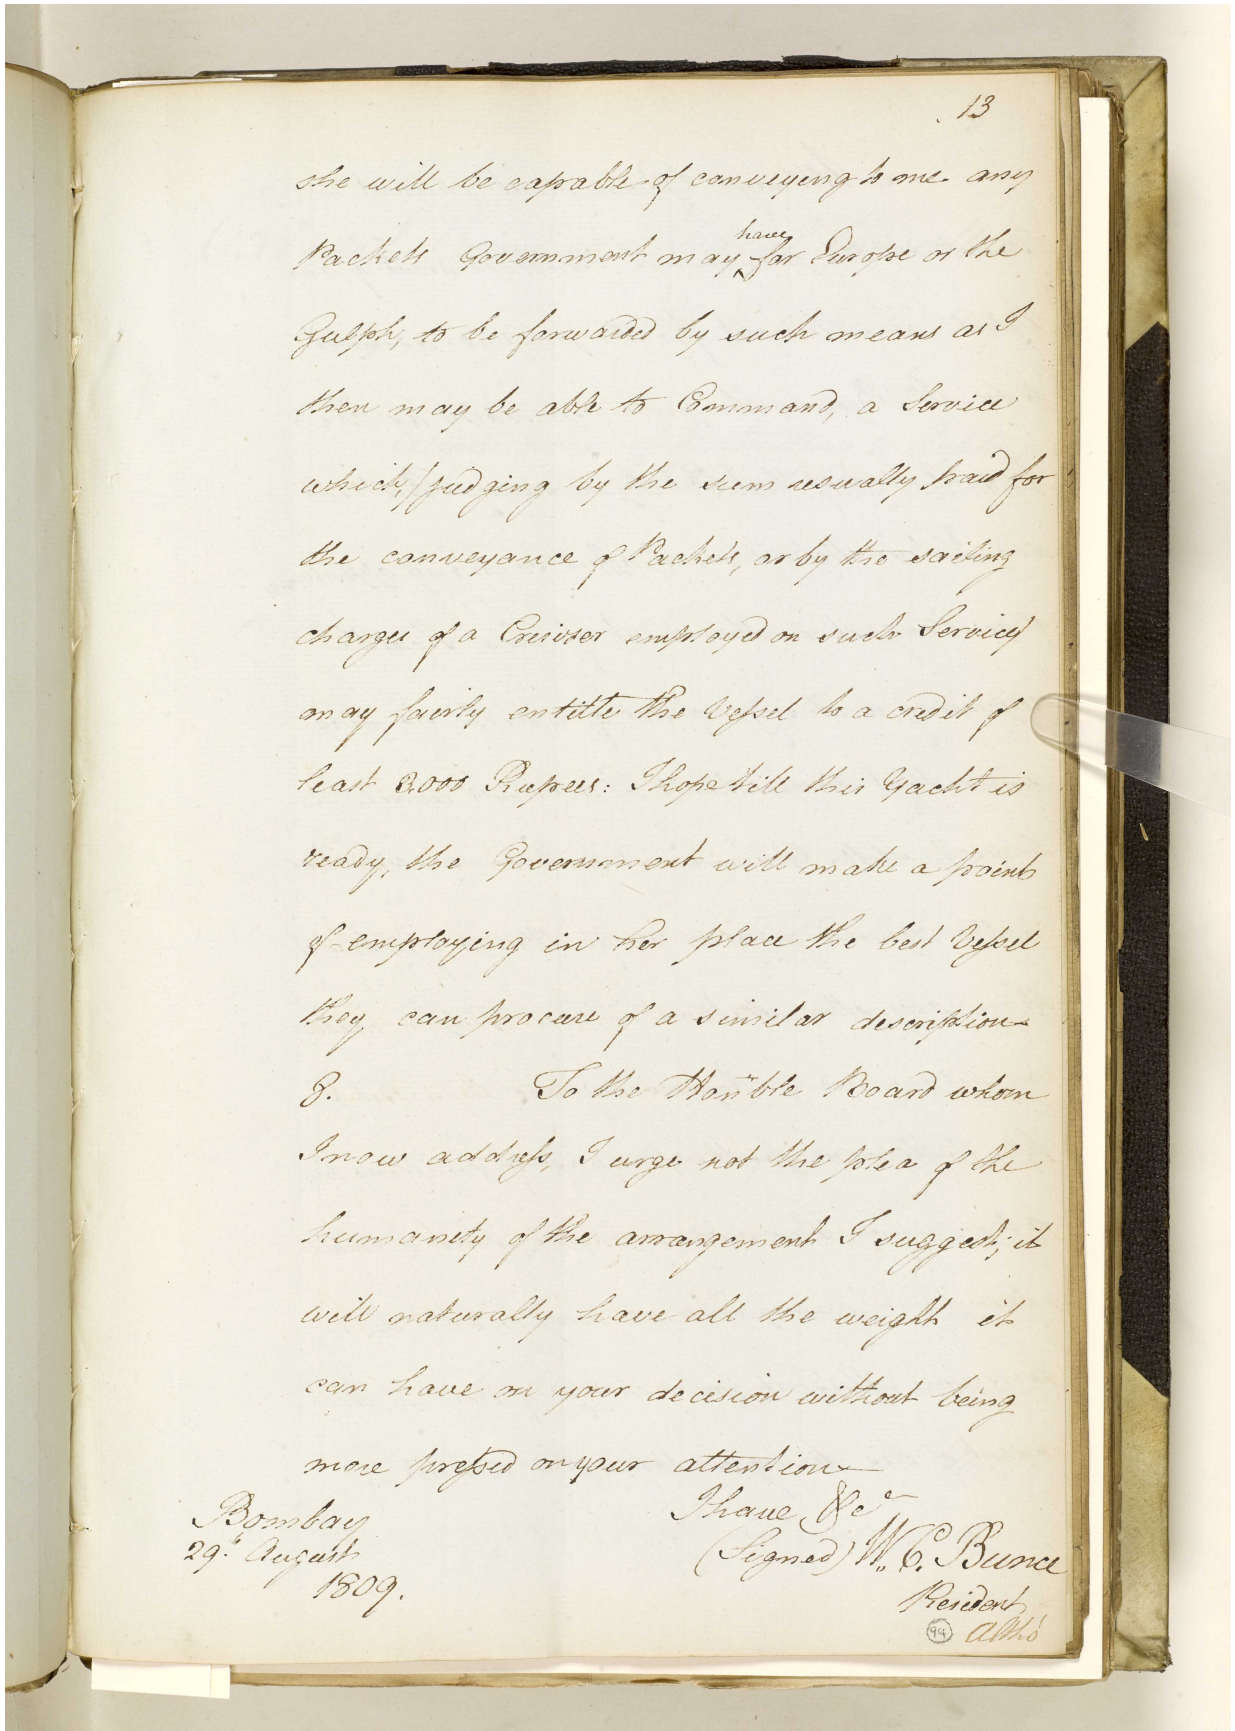 13
she will be capable of conveying to me any
Packets Government may have for Europe or the
Gulph, to be forwarded by such means as I
then may be able to Command, a Service
which, (judging by the sum usually paid for
the conveyance of Packets, or by the sailing
charges of a Cruizer employed on such Service)
may fairly entitle the Vessel to a credit of
least 3,000 Rupees: I hope till this Yacht is
ready, the Government will make a point
of employing in her place the best Vessel
they can procure of a similar description
8. To the Hon'ble Board whom
I now address, I urge not the plea of the
humanity of the arrangement I suggest; it
will naturally have all the weight it
can have on your decision without being
more pressed on your attention
I have &ca
Bombay
29th August
1809.
(Signed) W. C. Bunce
Resident
94
Altho'